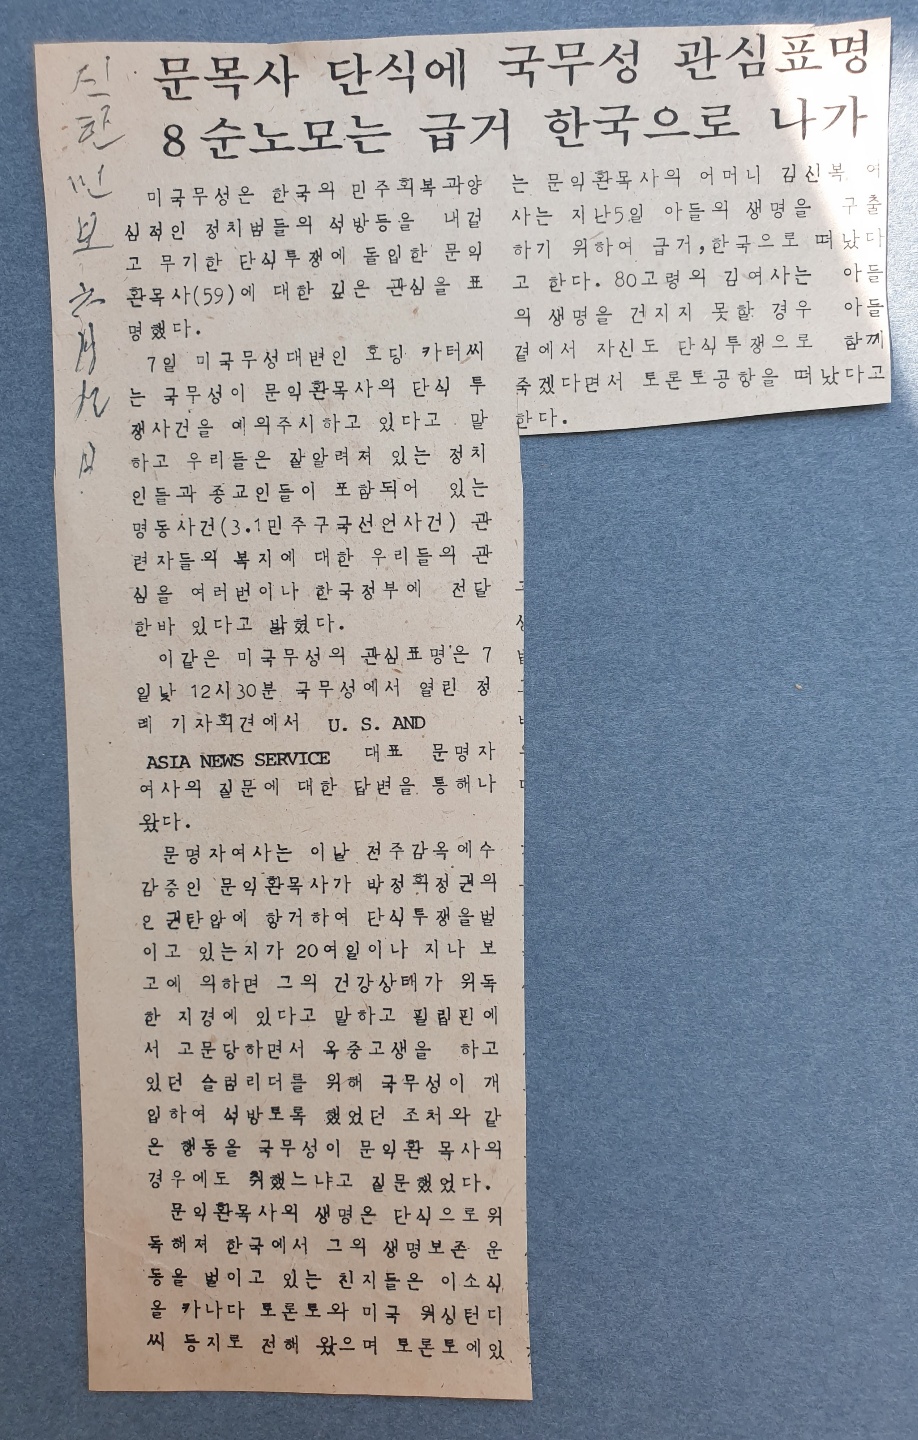 문목사 단식에 국무성 관심표명
8순노모는 급거 한국으로 나가
미국무성은 한국의 민주회복과양
심적인 정치범들의 석방등을 내걸
고 무기한 단식투쟁에 돌입한 문익
환목사(59)에 대한 깊은 관심을 표
명했다.
7일 미국무성대변인 호딩 카터씨
는 국무성이 문익환목사의 단식 투
쟁사건을 예의주시하고 있다고 말
하고 우리들은 잘알려져 있는 정치
인들과 종교인들이 포함되어 있는
명동사건(3.1민주구국선언사건) 관
련자들의 복지에 대한 우리들의 관
심을 여러번이나 한국정부에 전달
한바 있다고 밝혔다.
이같은 미국무성의 관심표명은 7
일낮 12시30분 국무성에서 열린 정
례 기자회견에서 U. S. AND
ASIA NEWS SERVICE 대표 문명자
여사의 질문에 대한 답변을 통해나
왔다.
문명자여사는 이날 전주감옥에수
감중인 문익환목사가 박정희정권의
인권탄압에 항거하여 단식투쟁을벌
이고 있는지가 20여일이나 지나 보
고에 의하면 그의 건강상태가 위독
한 지경에 있다고 말하고 필립핀에
서 고문당하면서 옥중고생을 하고
있던 슬럼리더를 위해 국무성이 개
입하여 석방토록 했었던 조처와 같
은 행동을 국무성이 문익환 목사의
경우에도 취했느냐고 질문했었다.
문익환목사의 생명은 단식으로위
독해져 한국에서 그의 생명보존 운
동을 벌이고 있는 친지들은 이소식
을 카나다 토론토와 미국 워싱턴디
씨 등지로 전해 왔으며 토론토에있
는 문익환목사의 어머니 김신복 여
사는 지난5일 아들의 생명을 구출
하기 위하여 급거,한국으로 떠났다
고 한다. 80고령의 김여사는 아들
의 생명을 건지지 못할 경우 아들
곁에서 자신도 단식투쟁으로 함께
죽겠다면서 토론토공항을 떠났다고
한다.
신한민보